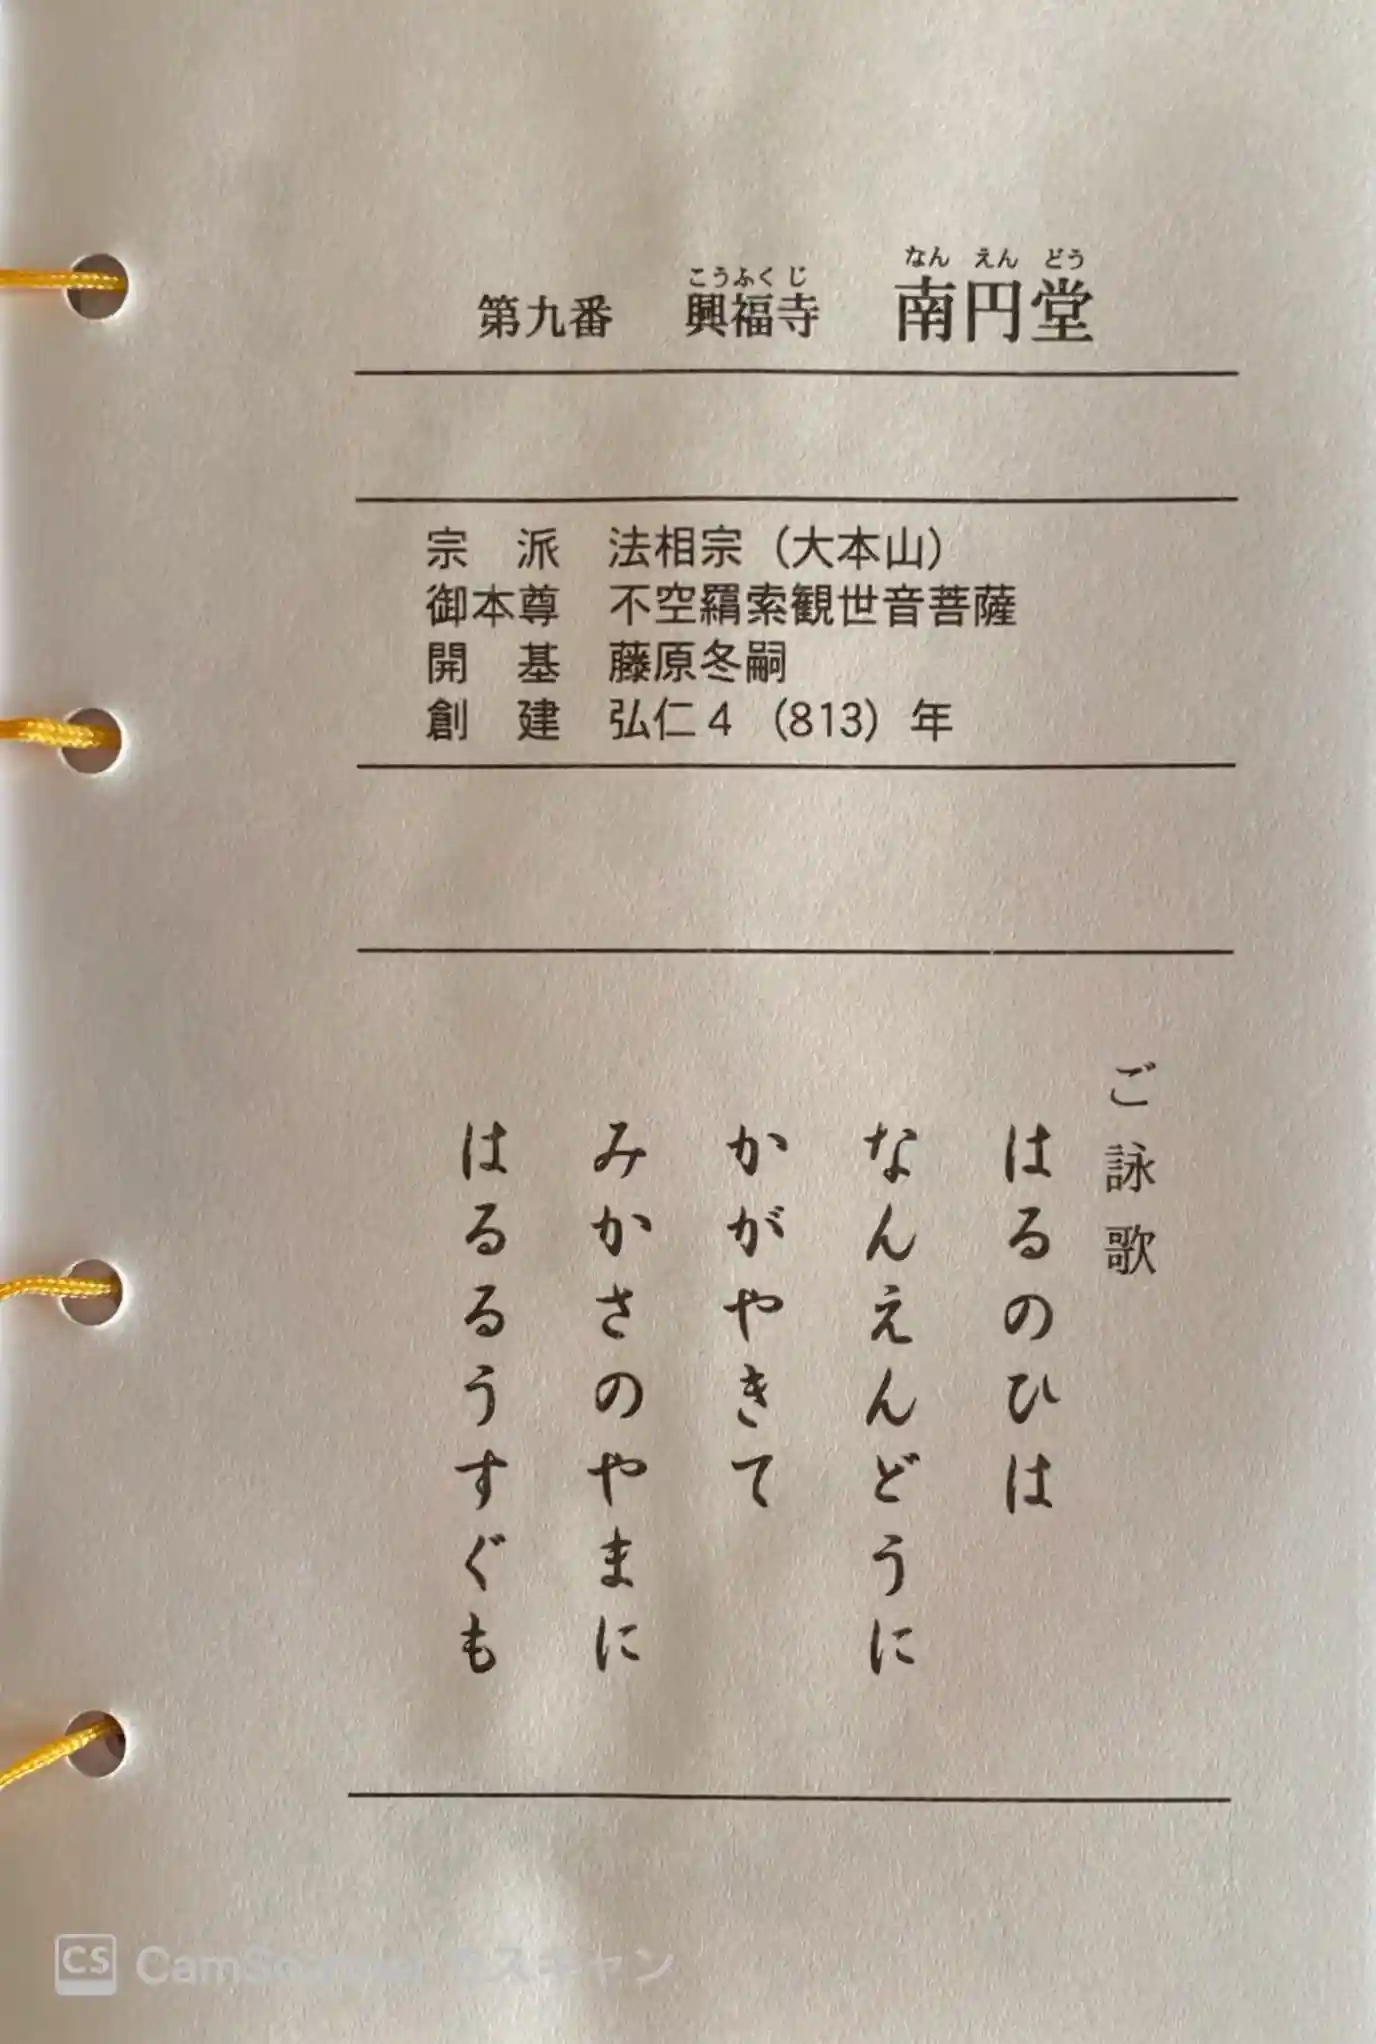 なんえんどう
こうふくじ
第九番 興福寺 南円堂
宗派 法相宗（大本山）
御本尊 不空羂索観世音菩薩
開基 藤原冬嗣
創建 弘仁4（813）年
ご詠歌
はるのひは
なんえんどうに
かがやきて
みかさのやまに
はるるうすぐも
CS CamScanner でスキャン